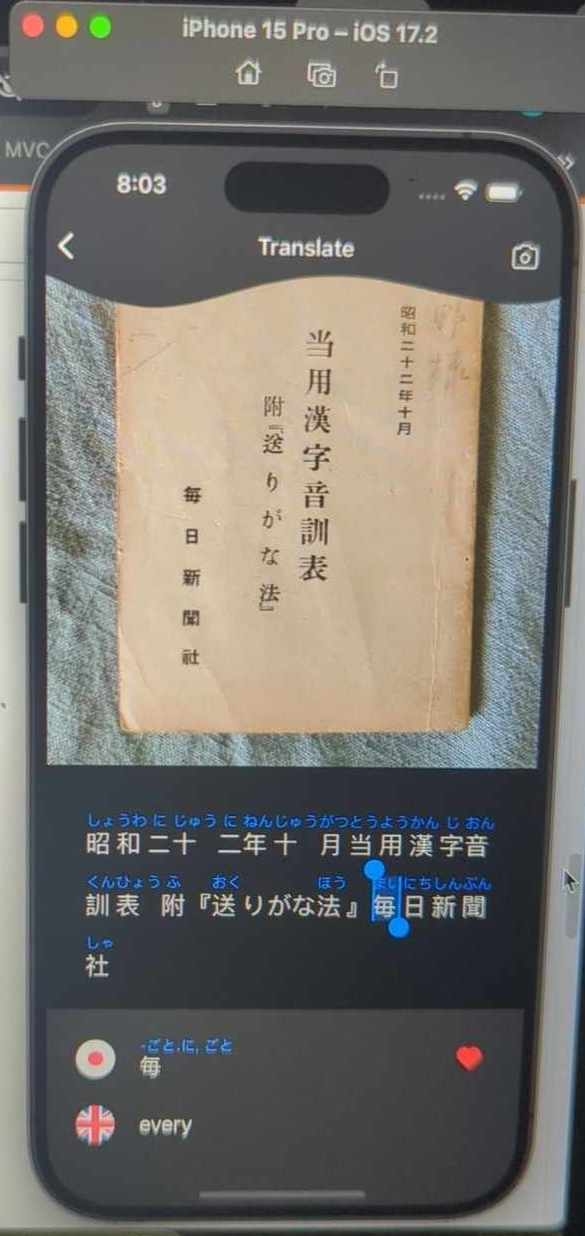 iPhone 15 Pro – iOS 17.2
MVC
8:03
Translate
昭和二十二年十月
当用漢字音訓表
附『送りがな法』
毎日新聞社
しょうわ に じゅう に ねんじゅうがつとうようかん じ おん
昭和二十 二年十 月当用漢字音
くんひょう ふ おく ほう まいにちしんぶん
訓表 附『送りがな法』毎日新聞
しゃ
社
-ごと.に, ごと
毎
every